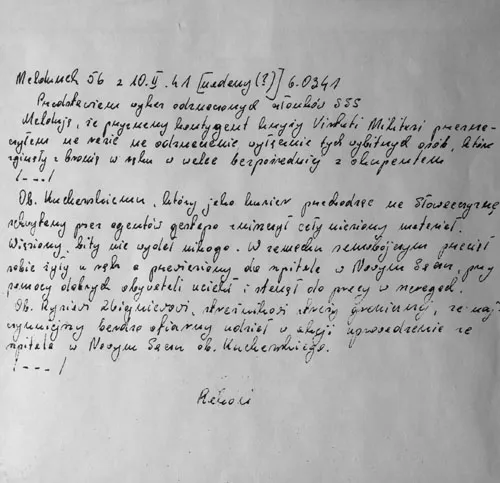 Meldunek 56 z 10.II.41 [nadany(?)] 6.0341
Przedstawiam wykaz odznaczonych członków SSS
Melduję, że przyznany kontygent krzyży Virtuti Militari przezna-
czyłem na razie na odznaczenie wyłącznie tych wybitnych osób, które
zginęły z bronią w ręku w walce bezpośredniej z okupantem
/---/
Ob. Kucharskiemu, który jako kurier przechodząc na Słowaczyznę
schwytany przez agentów gestapo zniszczył cały niesiony materiał.
Więziony, bity nie wydał nikogo. W zamachu samobójczym przeciął
sobie żyły u rąk a przewieziony do szpitala w Nowym Sączu, przy
pomocy dobrych obywateli uciekł i stanął do pracy w szeregach.
Ob. Rysiowi Zbigniewowi, strażnikowi straży granicznej, za naj-
czynniejszy bardzo ofiarny udział w akcji uprowadzenia ze
szpitala w Nowym Sączu ob. Kucharskiego.
/---/
Rakoń